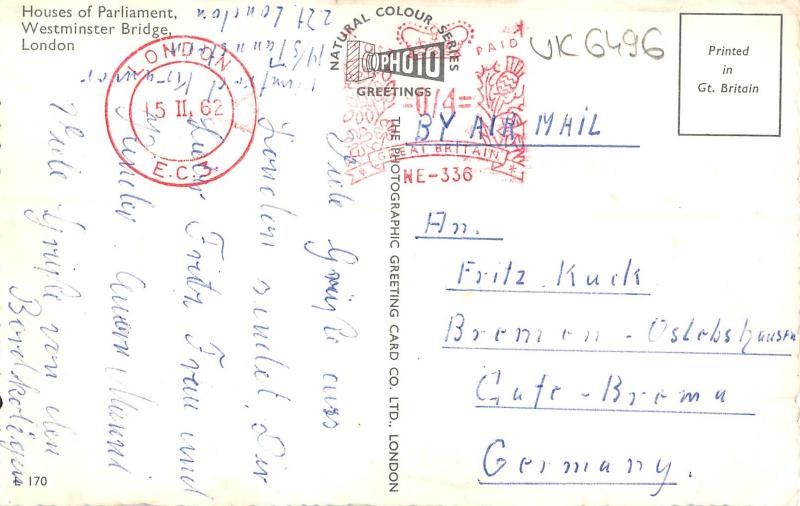 Houses of Parliament,
Westminster Bridge,
London
LONDON
15 II. 62
E.C.3
NATURAL COLOUR SERIES
PHOTO
GREETINGS
PAID
-0/4=
GREAT BRITAIN
NE-336
VK6496
Printed
in
Gt. Britain
BY AIR MAIL
THE PHOTOGRAPHIC GREETING CARD CO. LTD., LONDON
An.
Fritz Kuck
Bremen-Oslebshausen
Cafe-Brema
Germany.
Viele Grüße aus
London sendet Dir
Lieber Fritz Frau und
Kinder.
Viele Grüße von den
Bordkollegen
London
L 170